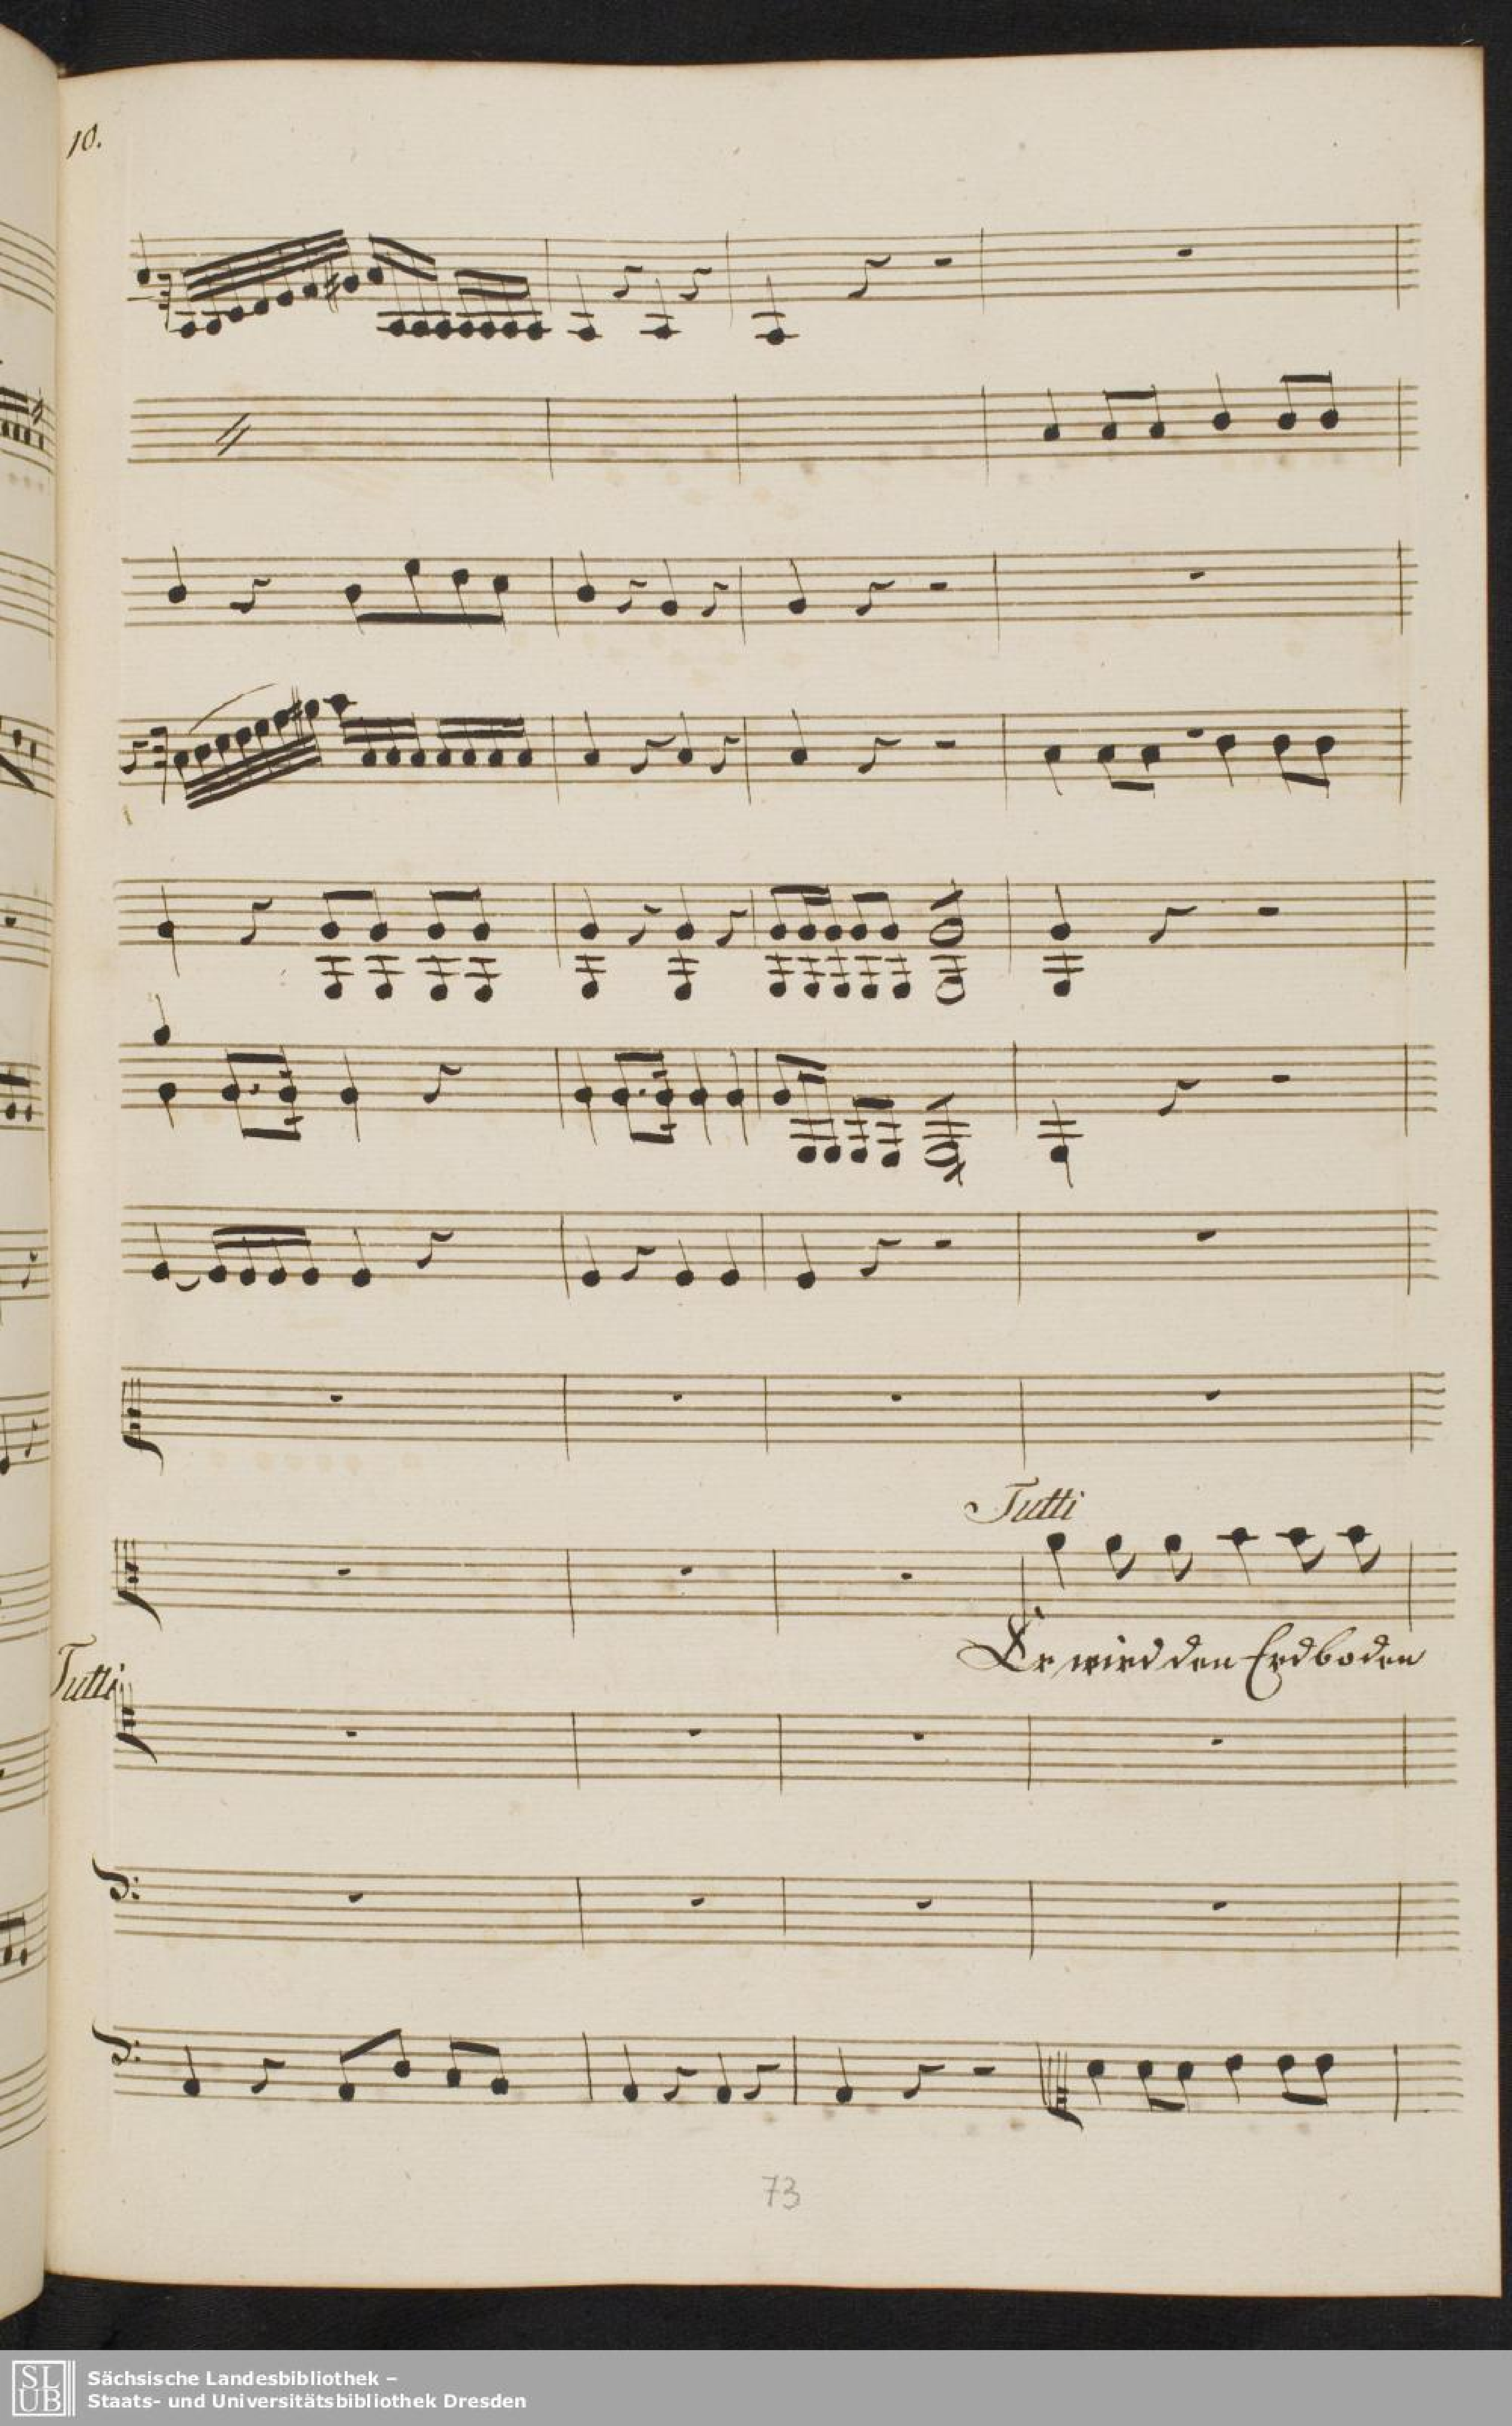 10.
Tutti
Er wird den Erdboden
Tutti
73
SLUB
Sächsische Landesbibliothek –
Staats- und Universitätsbibliothek Dresden